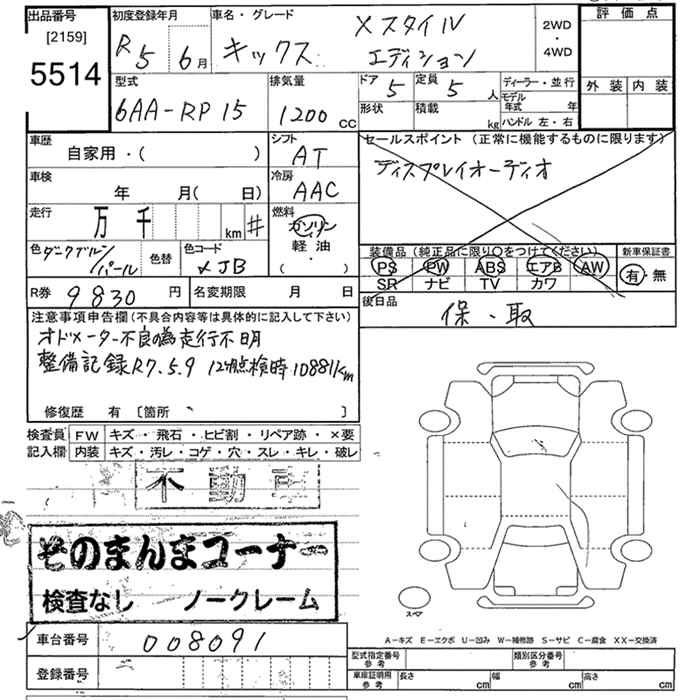 出品番号
[2159]
5514
初度登録年月
R5 6月
車名・グレード
キックス
Xスタイル
エディション
2WD
・
4WD
評価点
外装 内装
型式
6AA-RP15
排気量
1200 cc
ドア
5
定員
5 人
形状
積載
kg
ディーラー・並行
モデル年式 年
ハンドル 左・右
車歴
自家用・( )
シフト
AT
セールスポイント (正常に機能するものに限ります)
ディスプレイオーディオ
車検
年 月( 日)
冷房
AAC
走行
万 千 km #
燃料
ガソリン
軽油・
( )
色
パール
色替
色コード
装備品 (純正品に限り○をつけてください)
PS PW ABS エアB AW
SR ナビ TV カワ
新車保証書
有・無
R券
9830 円
名変期限 月 日
後日品
保・取
注意事項申告欄 (不具合内容等は具体的に記入して下さい)
オドメーター不良の為走行不明
整備記録R7.5.9 12ヶ月点検時10881km
修復歴 有 [箇所 ]
検査員
記入欄
FW キズ・飛石・ヒビ割・リペア跡・×要
内装 キズ・汚レ・コゲ・穴・スレ・キレ・破レ
不動車
そのまんまコーナー
検査なし ノークレーム
スペア
A－キズ E－エクボ U－凹み W－補修跡 S－サビ C－腐食 XX－交換済
車台番号
008091
登録番号
型式指定番号
参考
類別区分番号
参考
車庫証明用
参考
長さ cm
幅 cm
高さ cm